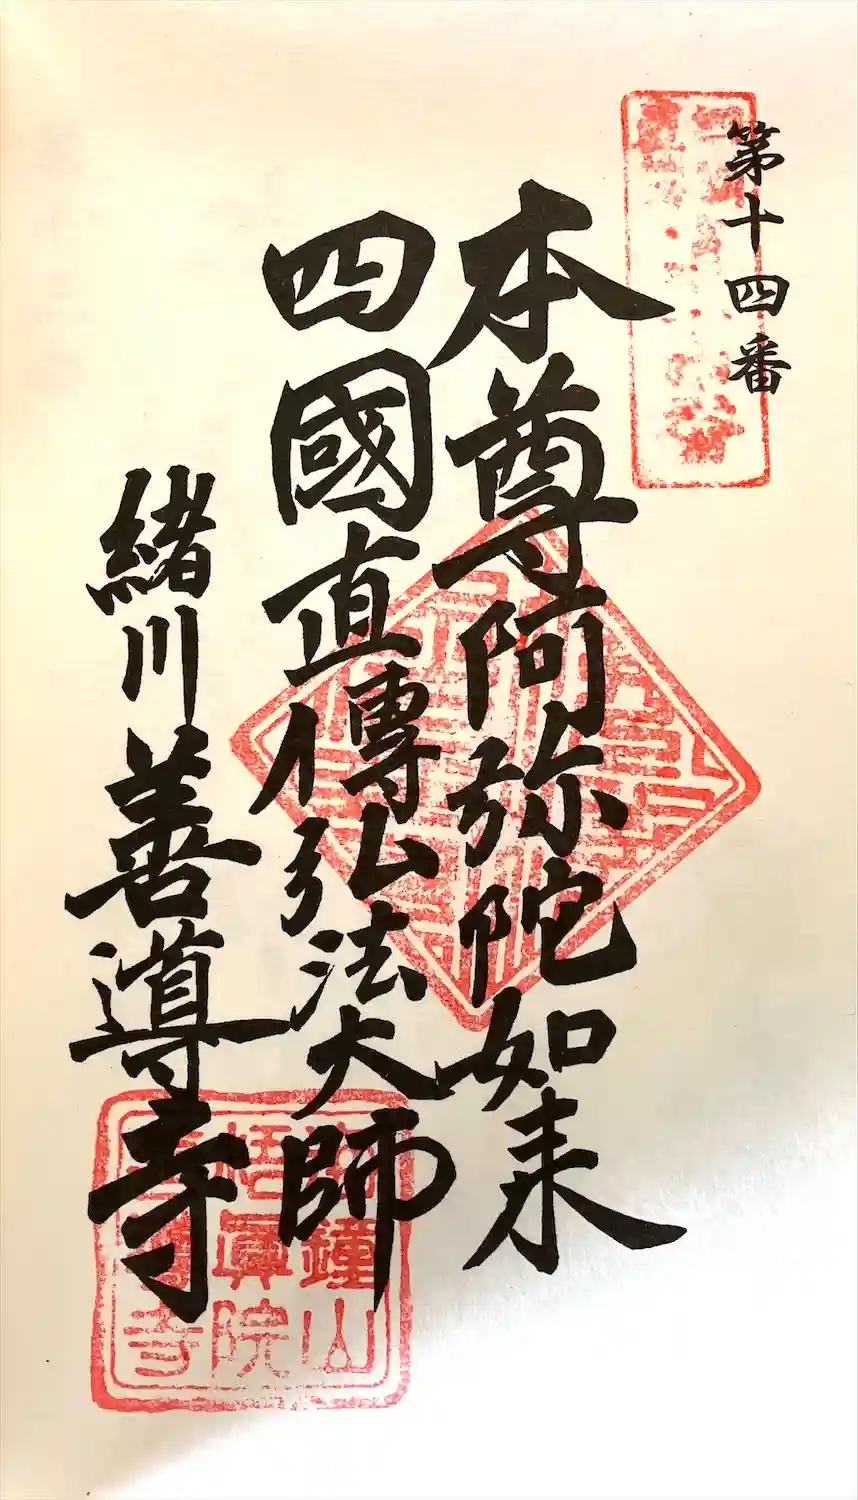 第十四番
本尊阿弥陀如来
四國直傳弘法大師
緒川善導寺
鐘山
悟真院
寺